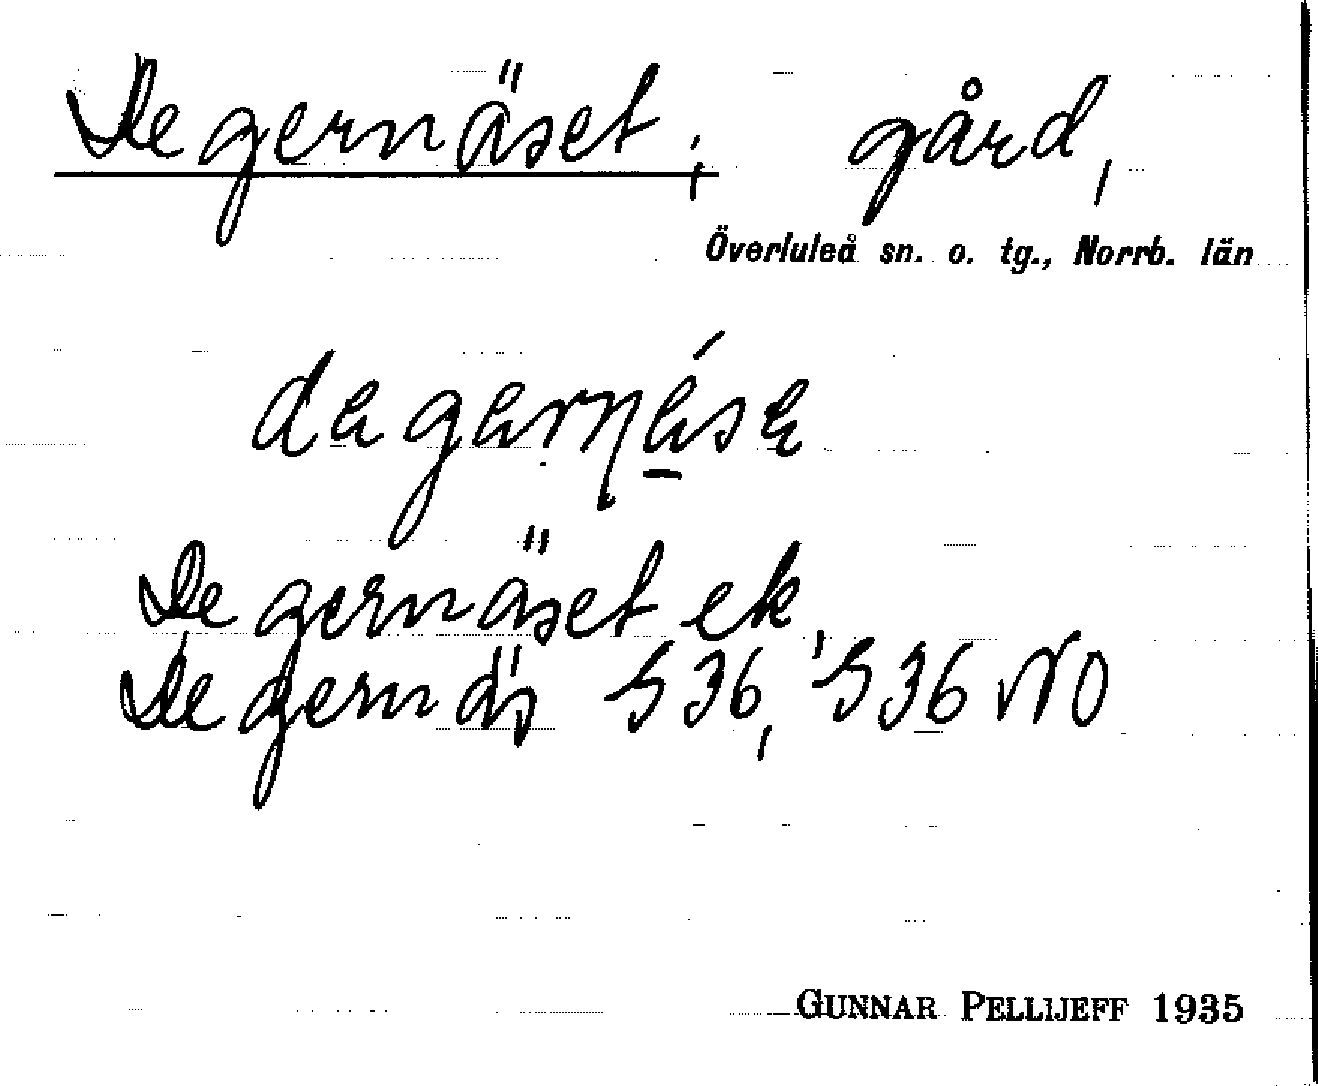 Degernäset; gård,
Överluleå sn. o. tg., Norrb. län
Degernäset ek,
Degernäs S36, S36 NO
GUNNAR PELLIJEFF 1935